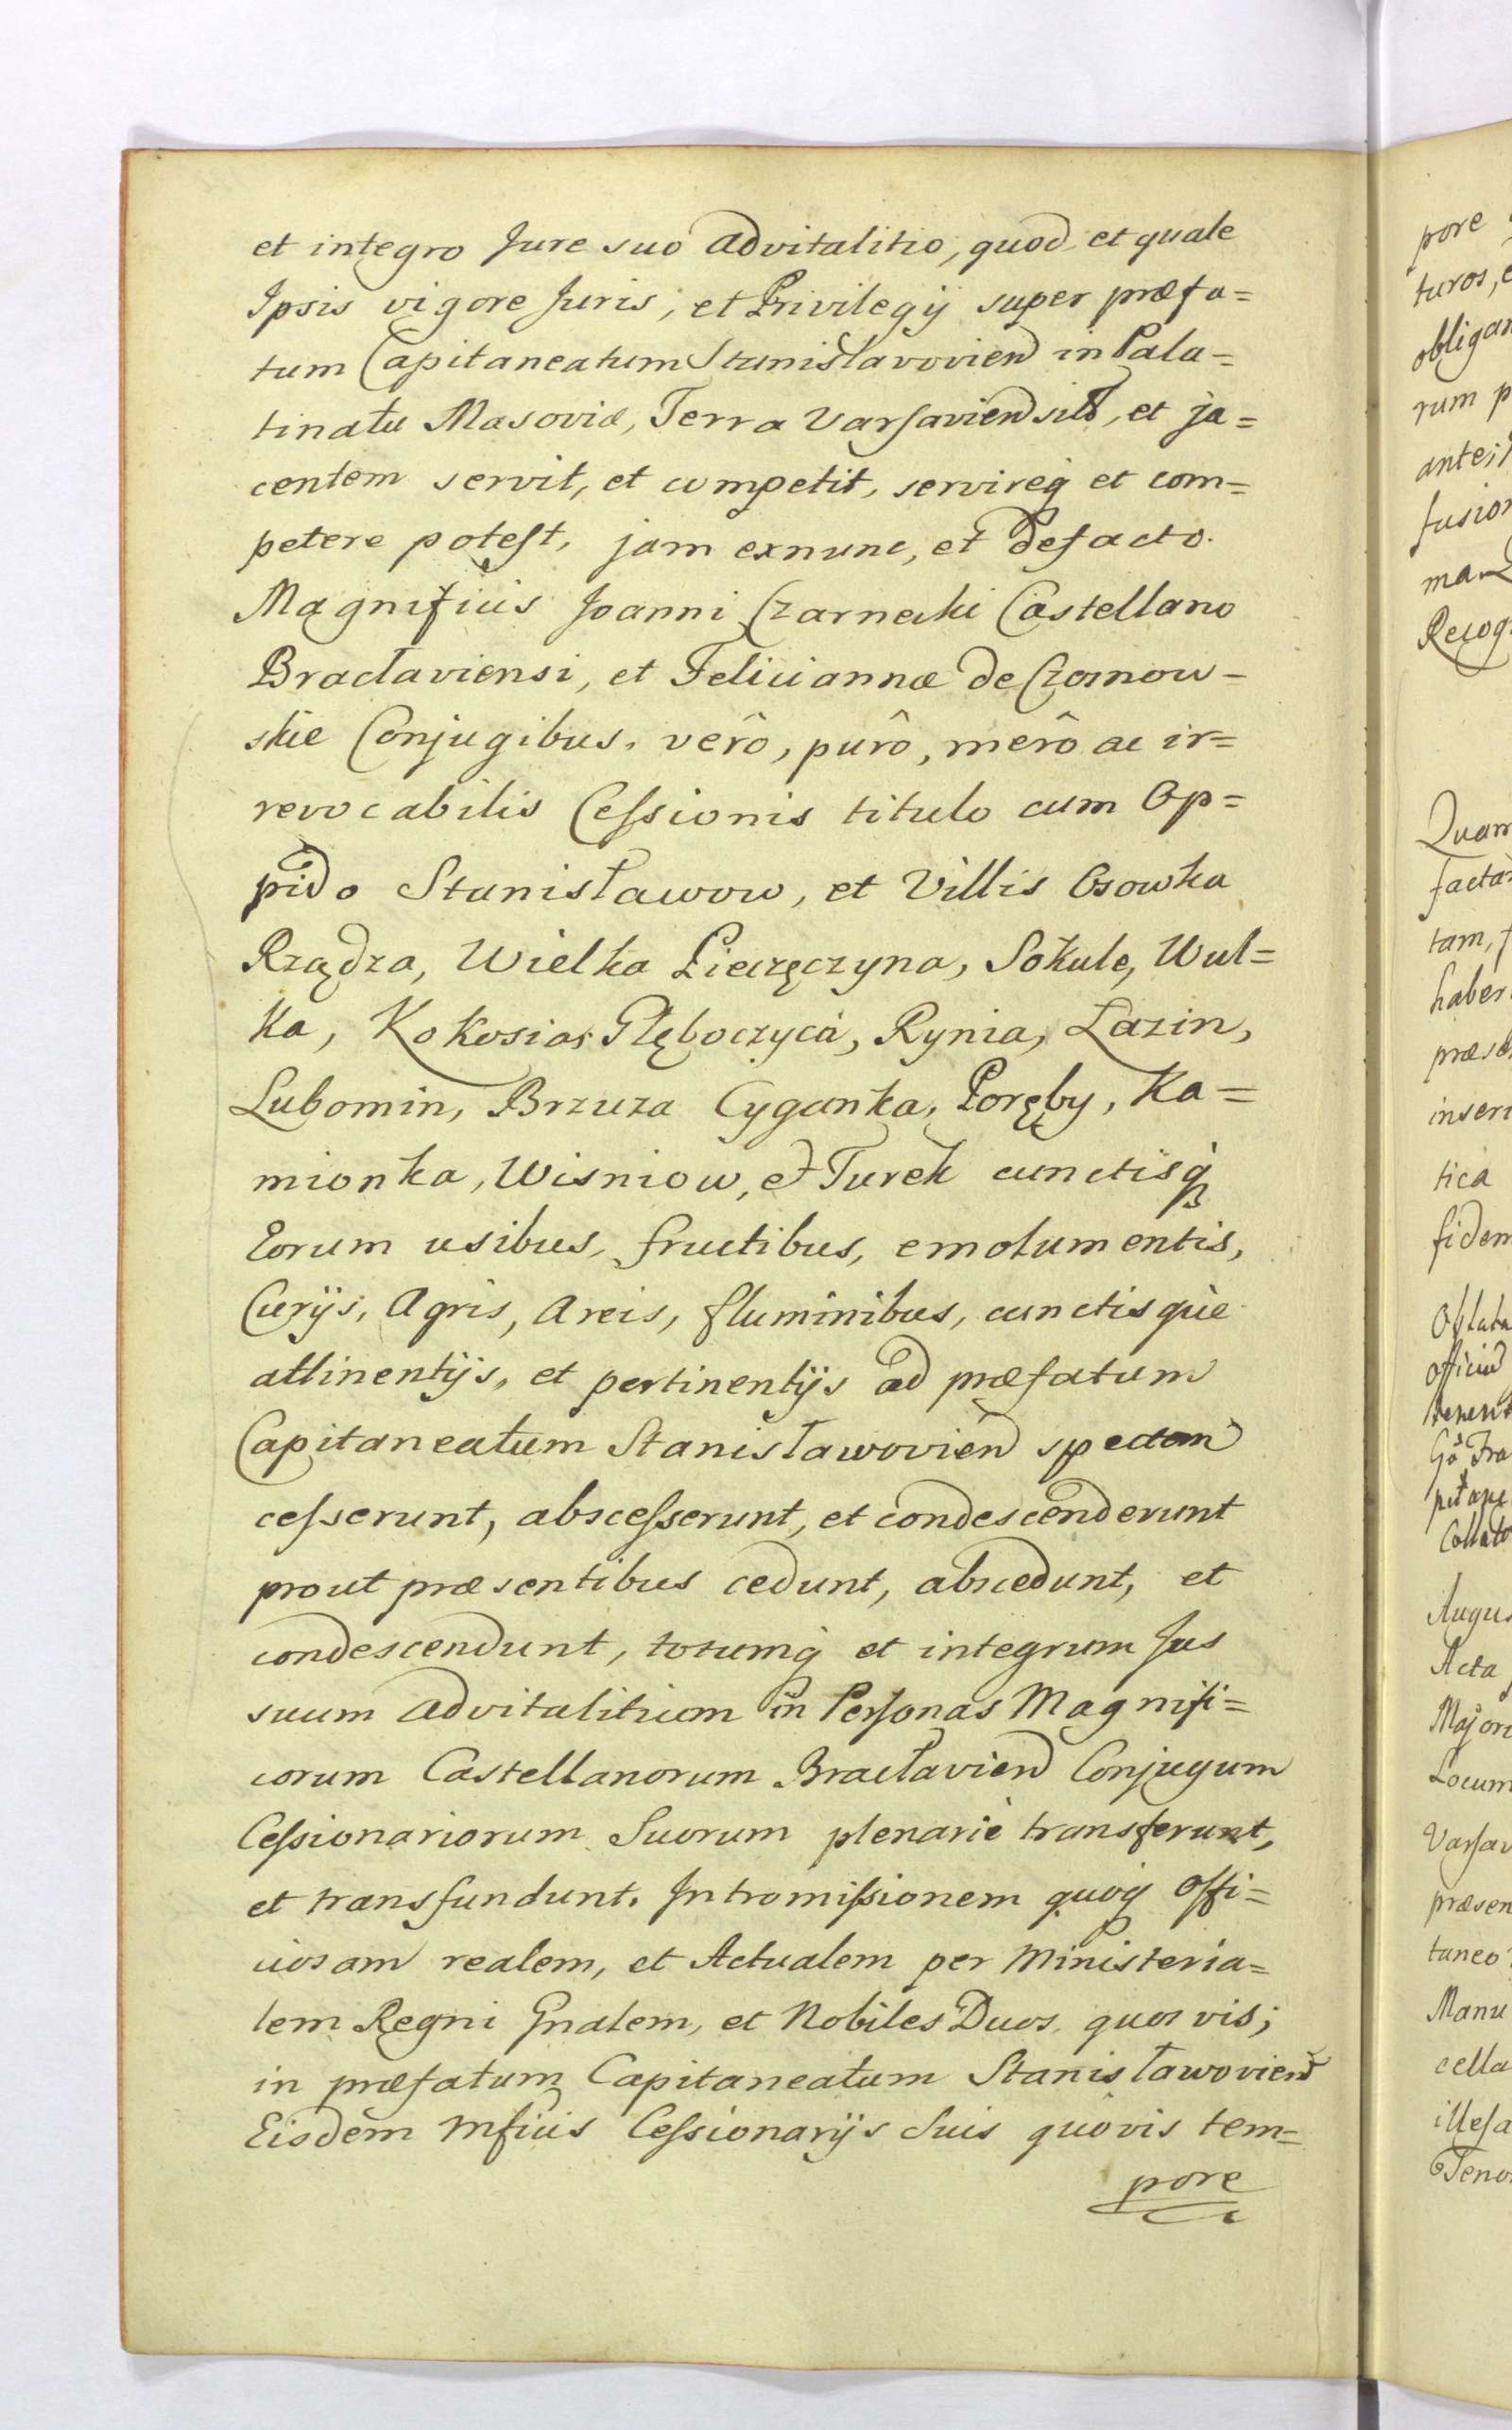 et integro Jure suo advitalitio, quod et quale
Ipsis vigore Juris, et Privilegij super præfa=
tum Capitaneatum Stanisławovien in Pala=
tinatu Masoviæ, Terra Varsavien sit̃, et ja=
centem servit, et competit, servireq́ et com=
petere potest, jam exnunc, et defacto.
Magnificis Joanni Czarnecki Castellano
Bracłaviensi, et Feliciannæ de Czosnow=
skie Conjugibus, verô, purô, merô ac ir=
revocabilis Cessionis titulo cum Op=
pido Stanisławow, et Villis Osowka
Rządza, Wielka Pieczęczyna, Sokule, Wul=
ka, Kokosias Głęboczyca, Rynia, Lazin,
Lubomin, Brzuza Cyganka, Poręby, Ka=
mionka, Wisniow, et Turek cunctisq́
Eorum usibus, fructibus, emolumentis,
Curijs, Agris, Areis, fluminibus, cunctisque
attinentijs, et pertinentijs ad præfatum
Capitaneatum Stanisławovien spectan
cesserunt, abscesserunt, et condescenderunt
prout præsentibus cedunt, abscedunt, et
condescendunt, totumq́ et integrum Jus
suum advitalitium in Personas Magnifi=
corum Castellanorum Bracłavien Conjugum
Cessionariorum Suorum plenariè transferunt,
et transfundunt. Intromissionem quoq́ offi=
ciosam realem, et Actualem per Ministeria=
lem Regni Gnalem, et Nobiles Duos quos vis;
in præfatum Capitaneatum Stanisławovien
Eisdem Mficis Cessionarijs Suis quovis tem=
pore
pore
turos, e
obligan
rum p
ante;
fusion
ma
Recog
Quam
facta
tam, f
haber
præse
inseri
tica
fidem
Oblata
officiu
Gõ Fra
Augus
Acta
Majori
Locum
Varsav
præsen
taneo
Manu
cella
illesa
Teno